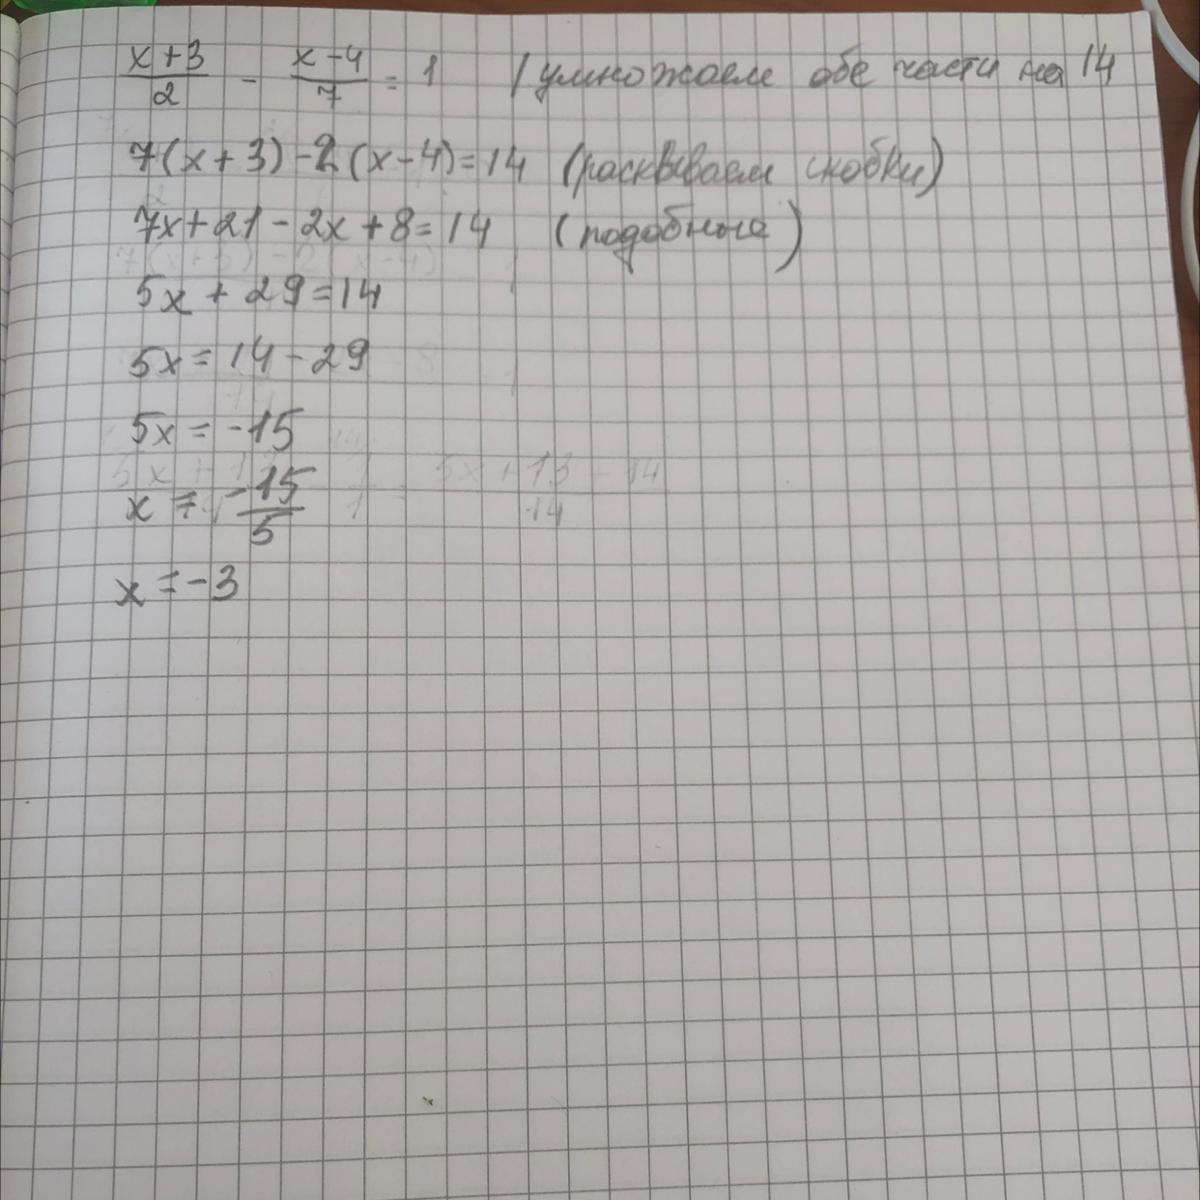 x+3/2 - x-4/7 = 1 / умножаем обе части на 14
7(x+3)-2(x-4)=14 (раскрываем скобки)
7x+21-2x+8=14 (подобные)
5x+29=14
5x=14-29
5x=-15
x=-15/5
x=-3